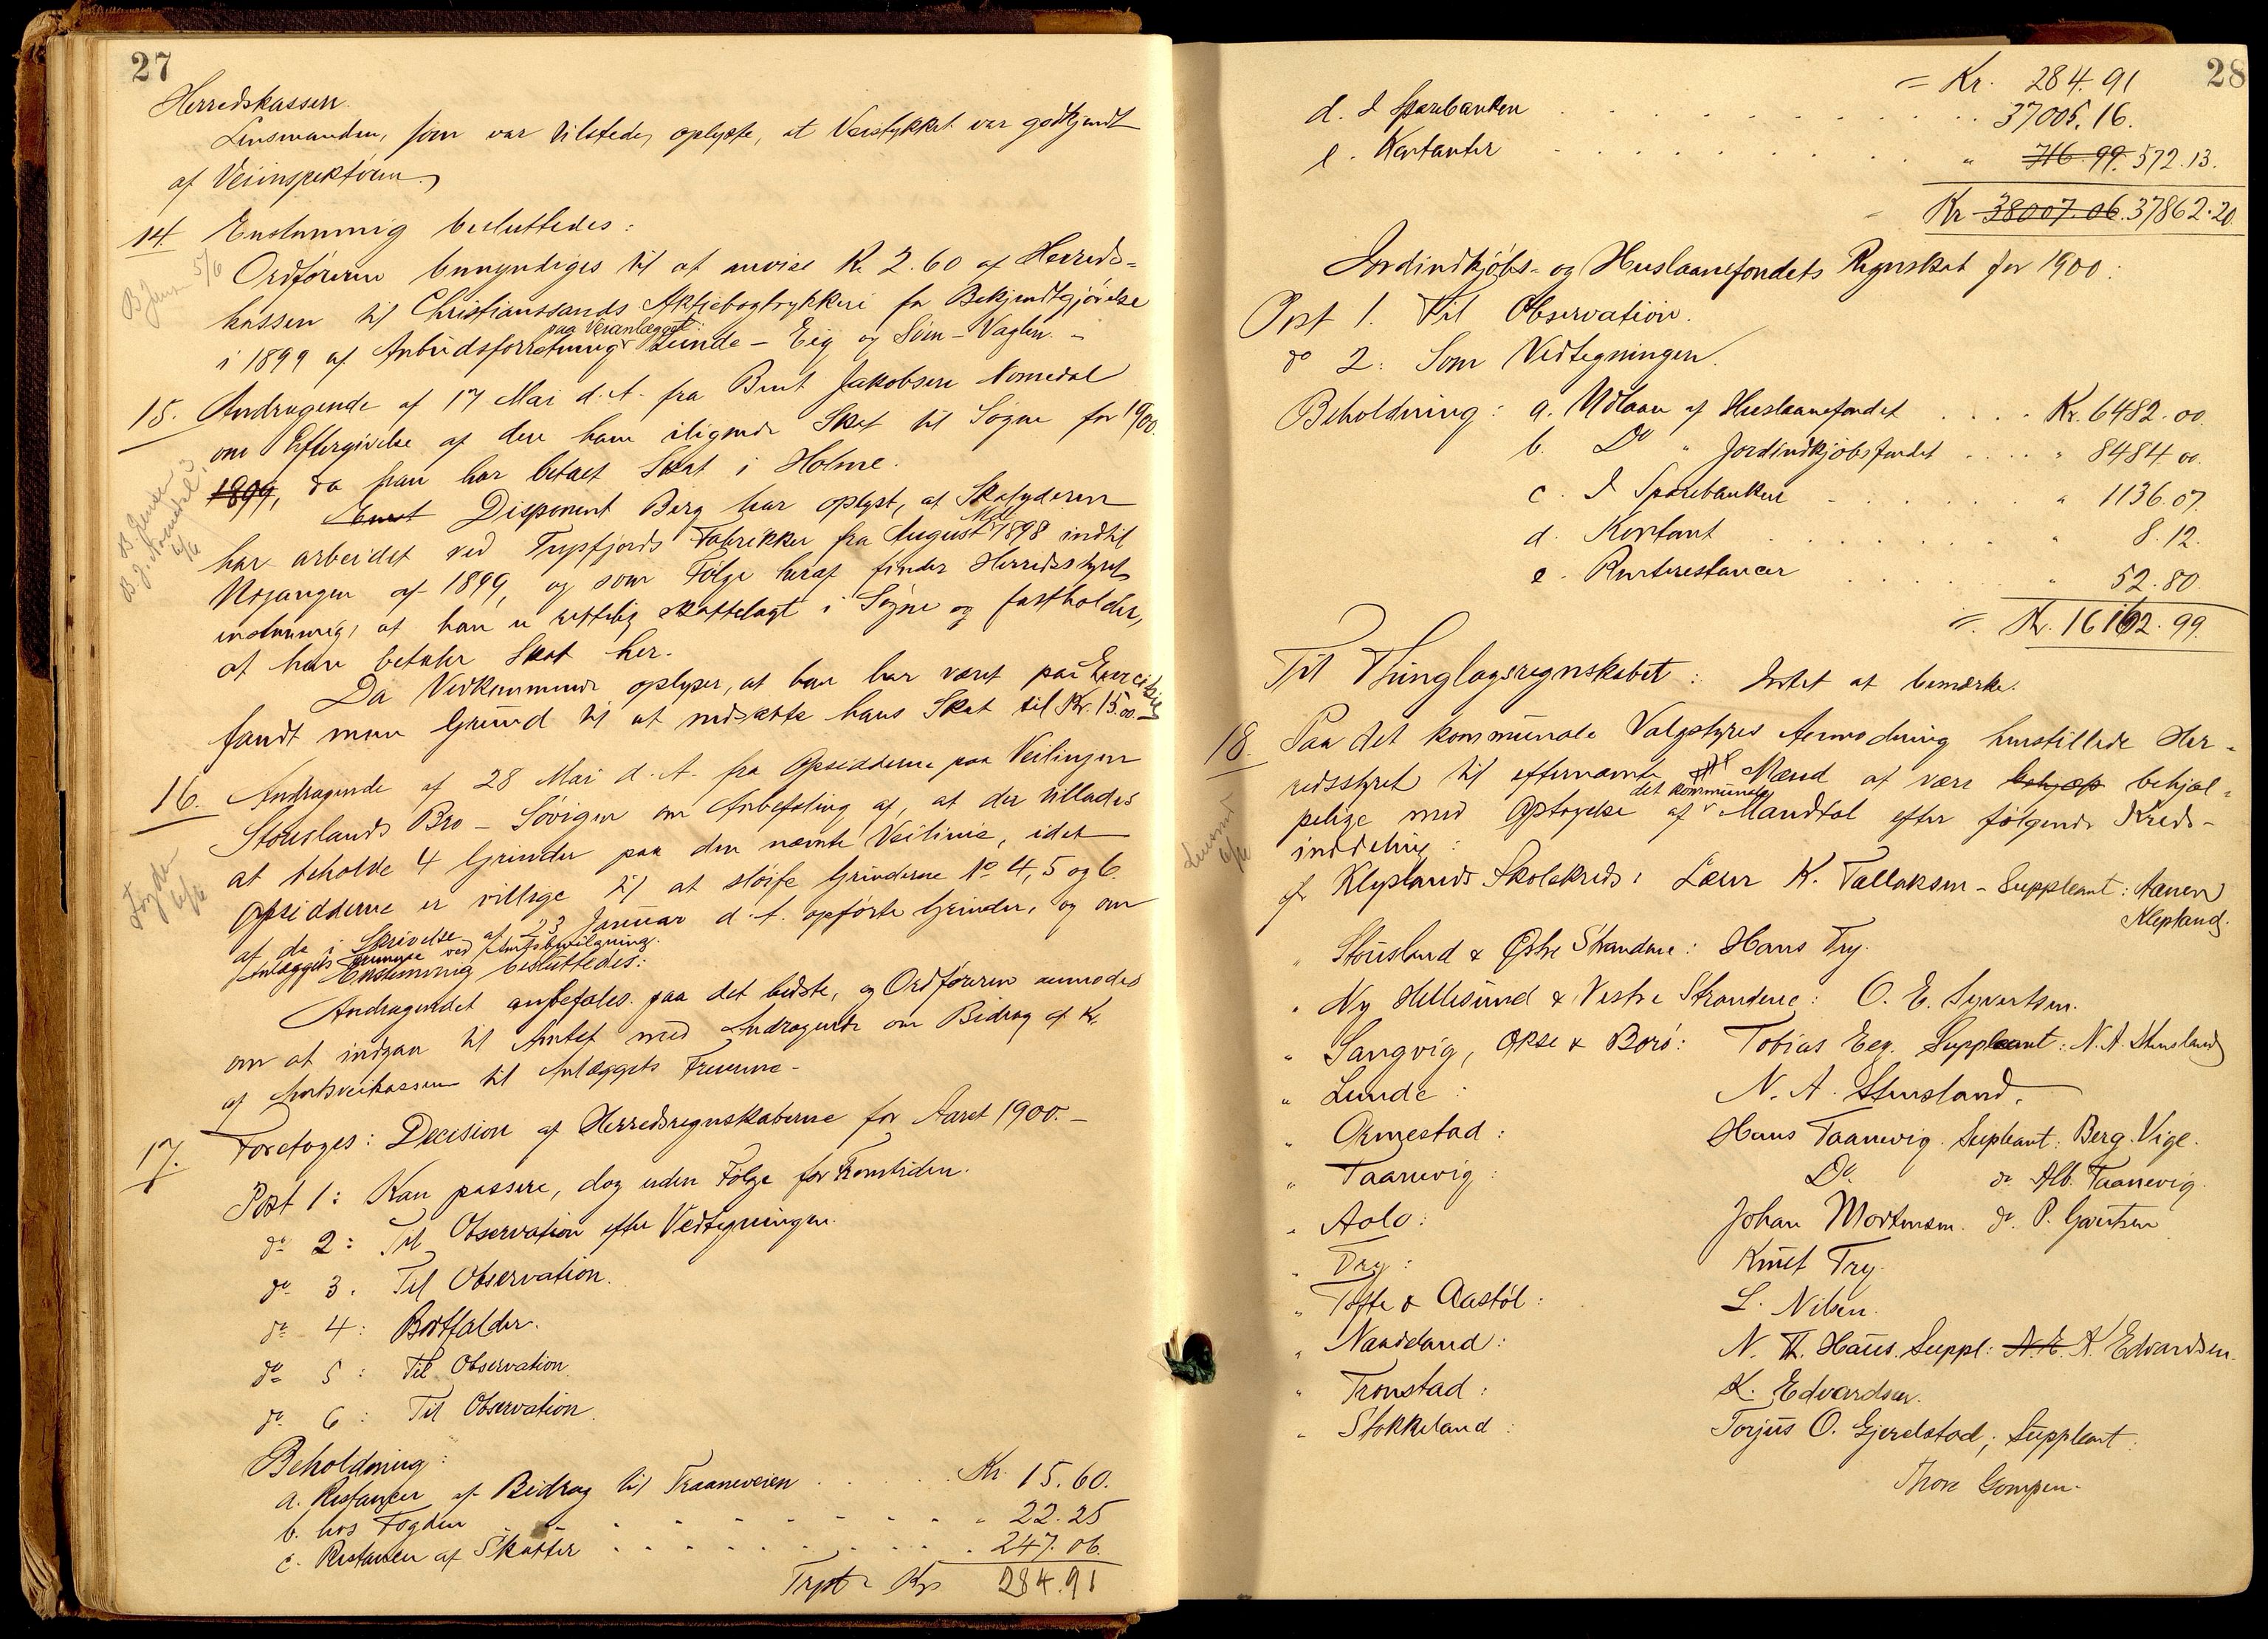 27
Herredskassen.
Lensmanden, som var tilstede, oplyste, at Veistykket var godkjendt
af Veiinspektøren.
14. Enstemmig besluttedes:
Ordføreren bemyndiges til at anvise Kr. 2.60 af Herreds-
kassen til Christianssands Aktiebogtrykkeri for Bekjendtgjørelse
paa Veianlægget
i 1899 af Anbudsforretning Lunde - Eig og Søm - Vaglen. -
B Jensen 5/6
15. Andragende af 17 Mai d. A. fra Bent Jakobsen Nomedal
om Eftergivelse af den ham ilignede Skat til Søgne for 1900.
1899, da han har betalt Skat i Holme.
Disponent Berg har oplyst, at Skatyderen
har arbeidet ved Trysfjords Fabrikker fra August Md 1898 indtil
Udgangen af 1899, og som Følge heraf finder Herredsstyret
enstemmig, at han er rettelig skattelagt i Søgne og fastholder,
at han betaler Skat her.
Da Vedkommende oplyser, at han har været paa Exercitie,
fandt man Grund til at nedsætte hans Skat til Kr. 15.00
B. Jensen
B. J. Nomedal
6/6
16. Andragende af 28 Mai d. A. fra Opsidderne paa Veilinjen
Stouslands Bro - Søvigen om Anbefaling af, at der tillades
at beholde 4 Grinder paa den nævnte Veilinie, idet
Opsidderne er villige til at sløife Grinderne No 4, 5 og 6
af de i Skrivelse af 23 Januar d. A. opførte Grinder, og om
Anlæggets Fremme ved Amtsbevilgning.
Enstemmig besluttedes:
Andragendet anbefales paa det bedste, og Ordføreren anmodes
om at indgaa til Amtet med Andragende om Bidrag af Kr.
af Amtsveikassen til Anlæggets Fremme. -
Fogden
6/6
17. Foretoges: Decision af Herredsregnskaberne for Aaret 1900. -
Post 1: Kan passere, dog uden Følge for Fremtiden.
do 2: Til Observation efter Vedtegningen.
do 3. Til Observation.
do 4: Bortfalder.
do 5: Til Observation.
do 6: Til Observation.
Beholdning:
a. Restancer af Bidrag til Traaneveien . . . . . Kr. 15.60.
b. hos Fogden . . . . . . . . " 22.25
c. Restancer af Skatter . . . . . . . . 247.06.
Trpt = Kr 284.91
28
= Kr. 284.91
d. I Sparebanken . . . . . . . . 37005.16.
e. Kontanter . . . . . . . . " 716.99. 572.13.
Kr 38007.06. 37862.20
Jordindkjøbs- og Huslaanefondets Regnskab for 1900:
Post 1. Til Observation.
do 2: Som Vedtegningen.
Beholdning: a. Udlaan af Huslaanefondet . . . . Kr. 6482.00.
b. Do " Jordindkjøbsfondet . . . . " 8484.00.
c. I Sparebanken . . . . . . " 1136.07.
d. Kontant . . . . . . . " 8.12.
e. Renterestancer . . . . . " 52.80.
= Kr. 16162.99.
Til Thinglagsregnskabet: Intet at bemærke.
18. Paa det kommunale Valgstyres Anmodning henstillede Her-
redsstyret til efternævnte Mænd at være behjæp behjæl-
det kommunale
pelige med Optagelse af Mandtal efter følgende Kreds-
inddeling:
Lensmd
6/6
for Kleplands Skolekreds: Lærer K. Tallaksen - Suppleant: Aanen
Klepland.
" Stousland & Østre Strandene: Hans Try.
" Ny Hellesund & Vestre Strandene: O. E. Syvertsen.
" Langvig, Okse & Borø: Tobias Eeg. Suppleant: N. A. Stensland
" Lunde: N. A. Stensland.
" Ormestad: Hans Taanevig. Supleant: Berg. Vige.
" Taanevig: Do do Alb. Taanevig.
" Aalo: Johan Mortensen. do P. Gavrtsen
" Try: Knut Try.
" Tofte & Aastøl: L. Nilsen.
" Naadeland: N. Th. Haus. Suppl: N. E. K. Edvardsen.
" Tronstad: K. Edvardsen.
" Stokkeland: Torjus O. Gjerdstad; Suppleant:
Thore Gompen.